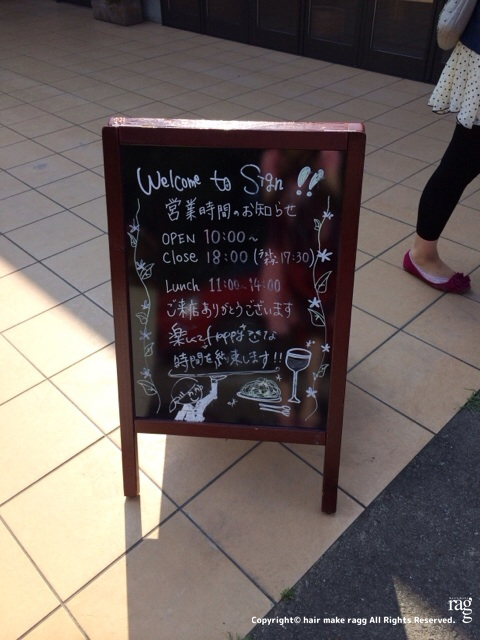 Welcome to Sign !!
営業時間のお知らせ
OPEN 10:00〜
Close 18:00 (ラスト 17:30)
Lunch 11:00〜14:00
ご来店ありがとうございます
時間を約束します!!
rag
Copyright© hair make ragg All Rights Reserved.